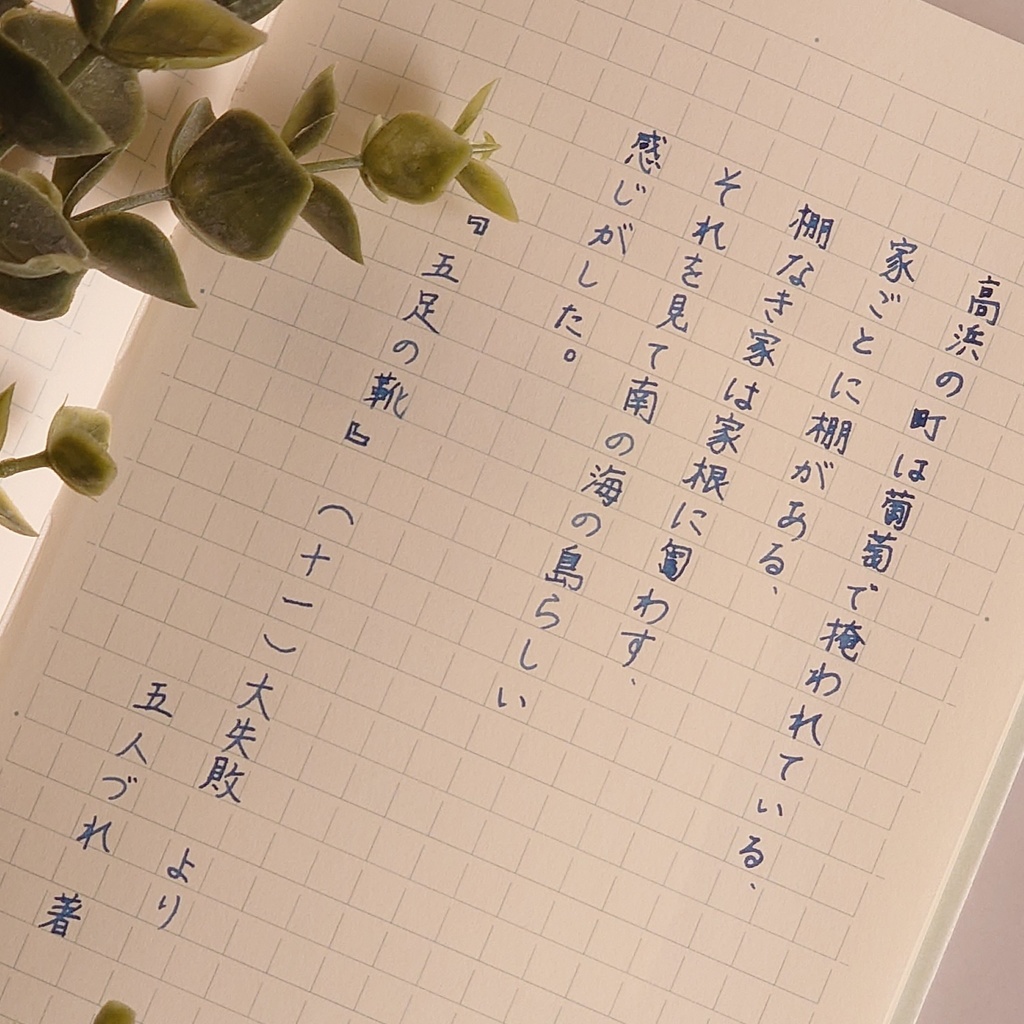 高浜の町は葡萄で掩われている、
家ごとに棚がある、
棚なき家は家根に匐わす、
それを見て南の海の島らしい
感じがした。
『五足の靴』 (十一)大失敗 より
五人づれ 著